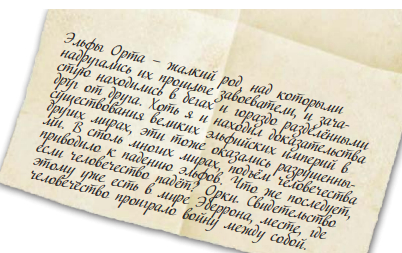 Эльфы Орта – жалкий род, над которыми
надругались их прошлые завоеватели, и зача-
стую находились в бегах и гораздо разделёнными
друг от друга. Хоть я и находил доказательства
существования великих эльфийских империй в
других мирах, эти тоже оказались разрушенны-
ми. В столь многих мирах, подъём человечества
приводило к падению эльфов. Что же последует,
если человечество падёт? Орки. Свидетельство
этому уже есть в мире Эберрона, месте, где
человечество проиграло войну между собой.